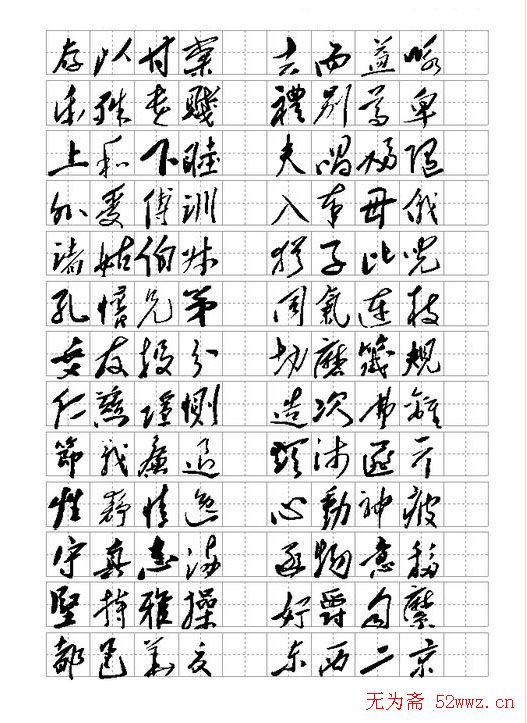 存以甘棠 去而益詠
樂殊貴賤 禮別尊卑
上和下睦 夫唱婦隨
外受傅訓 入奉母儀
諸姑伯叔 猶子比兒
孔懷兄弟 同氣連枝
交友投分 切磨箴規
仁慈隱惻 造次弗離
節義廉退 顛沛匪亏
性靜情逸 心動神疲
守真志滿 逐物意移
堅持雅操 好爵自縻
都邑華夏 東西二京
无为斋 52wwz.cn